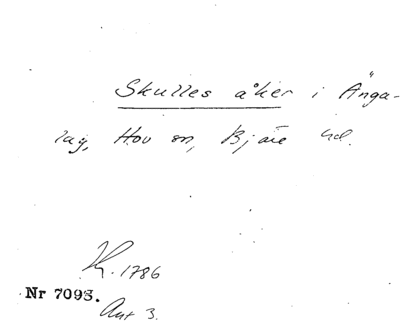 Skulles åker i Änga-
lag, Hov sn, Bjäre hd.
1786
Nr 7093.
Akt 3.